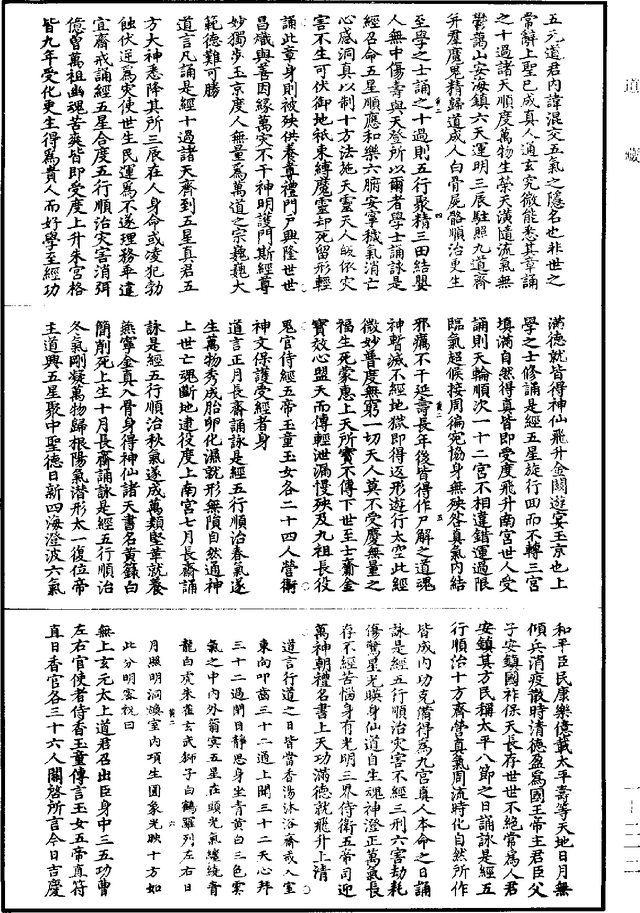 道藏
五元道君內諱混交五氣之隱名也非世之
常辭上聖已成真人通玄究微能悉其章誦
之十過諸天順度萬物生榮天漢隨流氣無
鬱藹山安海鎮六天運明三辰駐照九道齊
并羣魔鬼精歸道成人白骨屍骼順治更生
至學之士誦之十過則五行聚精三田結嬰
人無中傷壽與天登所以爾者學士誦詠是
經召命五星順應和樂六腑安寧穢氣消亡
心感洞真以制十方法施天靈天人皈依灾
害不生可伏御地祇束縛魔靈却死留形輕
誦此章身則被殃供養尊禮門戶興隆世世
昌熾與善因緣萬灾不干神明護門斯經尊
妙獨步玉京度人無量爲萬道之宗巍巍大
範德難可勝
道言凡誦是經十過諸天齊到五星真君五
方大神悉降其所三辰在人身命或凌犯勃
蝕伏逆爲灾使世生民運爲不遂理務乖違
宜齋戒誦經五星合度五行順治灾害消弭
億曾萬祖幽魂苦爽皆即受度上升朱宮格
皆九年受化更生得爲貴人而好學至經功
滿德就皆得神仙飛升金闕遊宴玉京也上
學之士修誦是經五星旋行回而不轉三宮
填滿自然得真皆即受度飛升南宮世人受
誦則天輪順次一十二宮不相違錯運過限
臨氣超候接周徧宛協身無殃咎真氣內結
邪癘不干延壽長年後皆得作尸解之道魂
神暫滅不經地獄即得返形遊行太空此經
微妙普度無窮一切天人莫不受慶無量之
福生死蒙惠上天所寶不傳下世至士齎金
寶效心盟天而傳輕泄漏慢殃及九祖長役
鬼官侍經五帝玉童玉女各二十四人營衛
神文保護受經者身
道言正月長齋誦詠是經五行順治春氣遂
生萬物秀成胎卵化濕就形無隕自然通神
上世亡魂斷地逮役度上南宮七月長齋誦
詠是經五行順治秋氣遂成萬類堅華就養
無寧金真入骨身得神仙諸天書名黃籙白
簡削死上生十月長齋誦詠是經五行順治
冬氣剛凝萬物歸根陽氣潛形太一復位帝
王道興五星聚中聖德日新四海澄波六氣
和平臣民康樂億載太平壽等天地日月無
傾兵消疫散時清德盈爲國王帝主君臣父
子安鎮國祚保天長存世世不絕常爲人君
安鎮其方民稱太平八節之日誦詠是經五
行順治十方齊營真氣周流時化自然所作
皆成內功克備得爲九宮真人本命之日誦
詠是經五行順治灾害不經三刑六害劫耗
傷驚星光暎身仙道自生魂神澄正萬氣長
存不經苦惱身有光明三界侍衛五帝司迎
萬神朝禮名書上天功滿德就飛升上清
道言行道之日皆當香湯沐浴齋戒入室
東向叩齒三十二通上聞三十二天心拜
三十二過閉目靜思身坐青黃白三色雲
氣之中內外蓊冥五星在頭光氣纏繞青
龍白虎朱雀玄武獅子白鶴羅列左右日
月照明洞煥室內項生圓象光映十方如
此分明密祝曰
無上玄元太上道君召出臣身中三五功曹
左右官使者侍香玉童傳言玉女五帝直符
直日香官各三十六人關啓所言今日吉慶